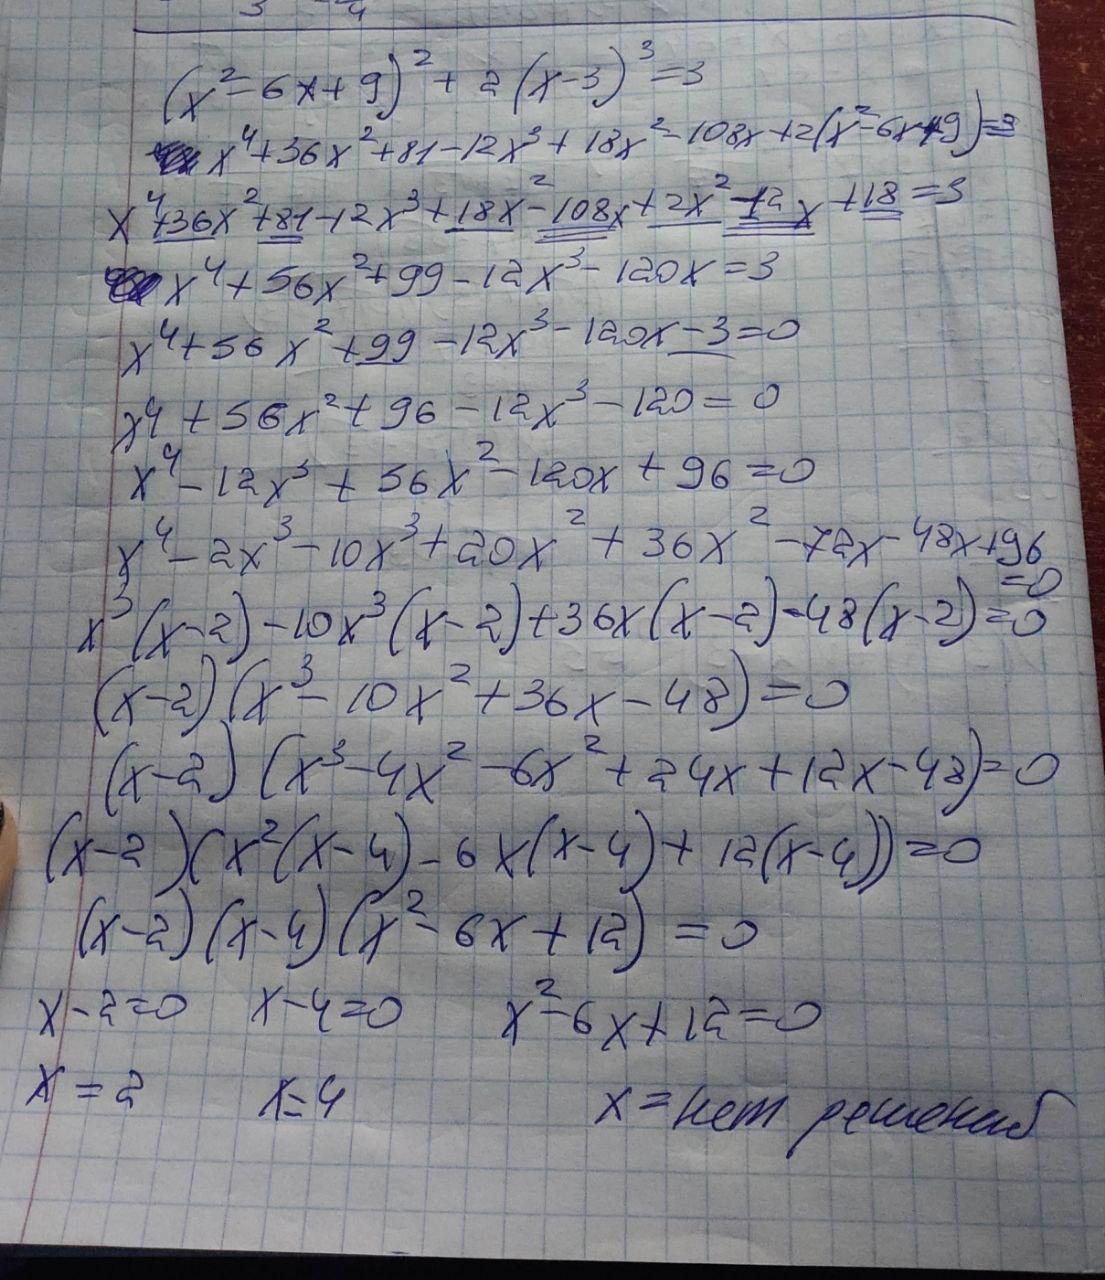 3 4
(x²-6x+9)²+2(x-3)³=3
x⁴+36x²+81-12x³+18x²-108x+2(x²-6x+9)=3
x⁴+36x²+81-12x³+18x²-108x+2x²-12x+18=3
x⁴+56x²+99-12x³-120x=3
x⁴+56x²+99-12x³-120x-3=0
x⁴+56x²+96-12x³-120=0
x⁴-12x³+56x²-120x+96=0
x⁴-2x³-10x³+20x²+36x²-72x-48x+96
=0
x³(x-2)-10x³(x-2)+36x(x-2)-48(x-2)=0
(x-2)(x³-10x²+36x-48)=0
(x-2)(x³-4x²-6x²+24x+12x-48)=0
(x-2)(x²(x-4)-6x(x-4)+12(x-4))=0
(x-2)(x-4)(x²-6x+12)=0
x-2=0 x-4=0 x²-6x+12=0
x=2 x=4 x=нет решений